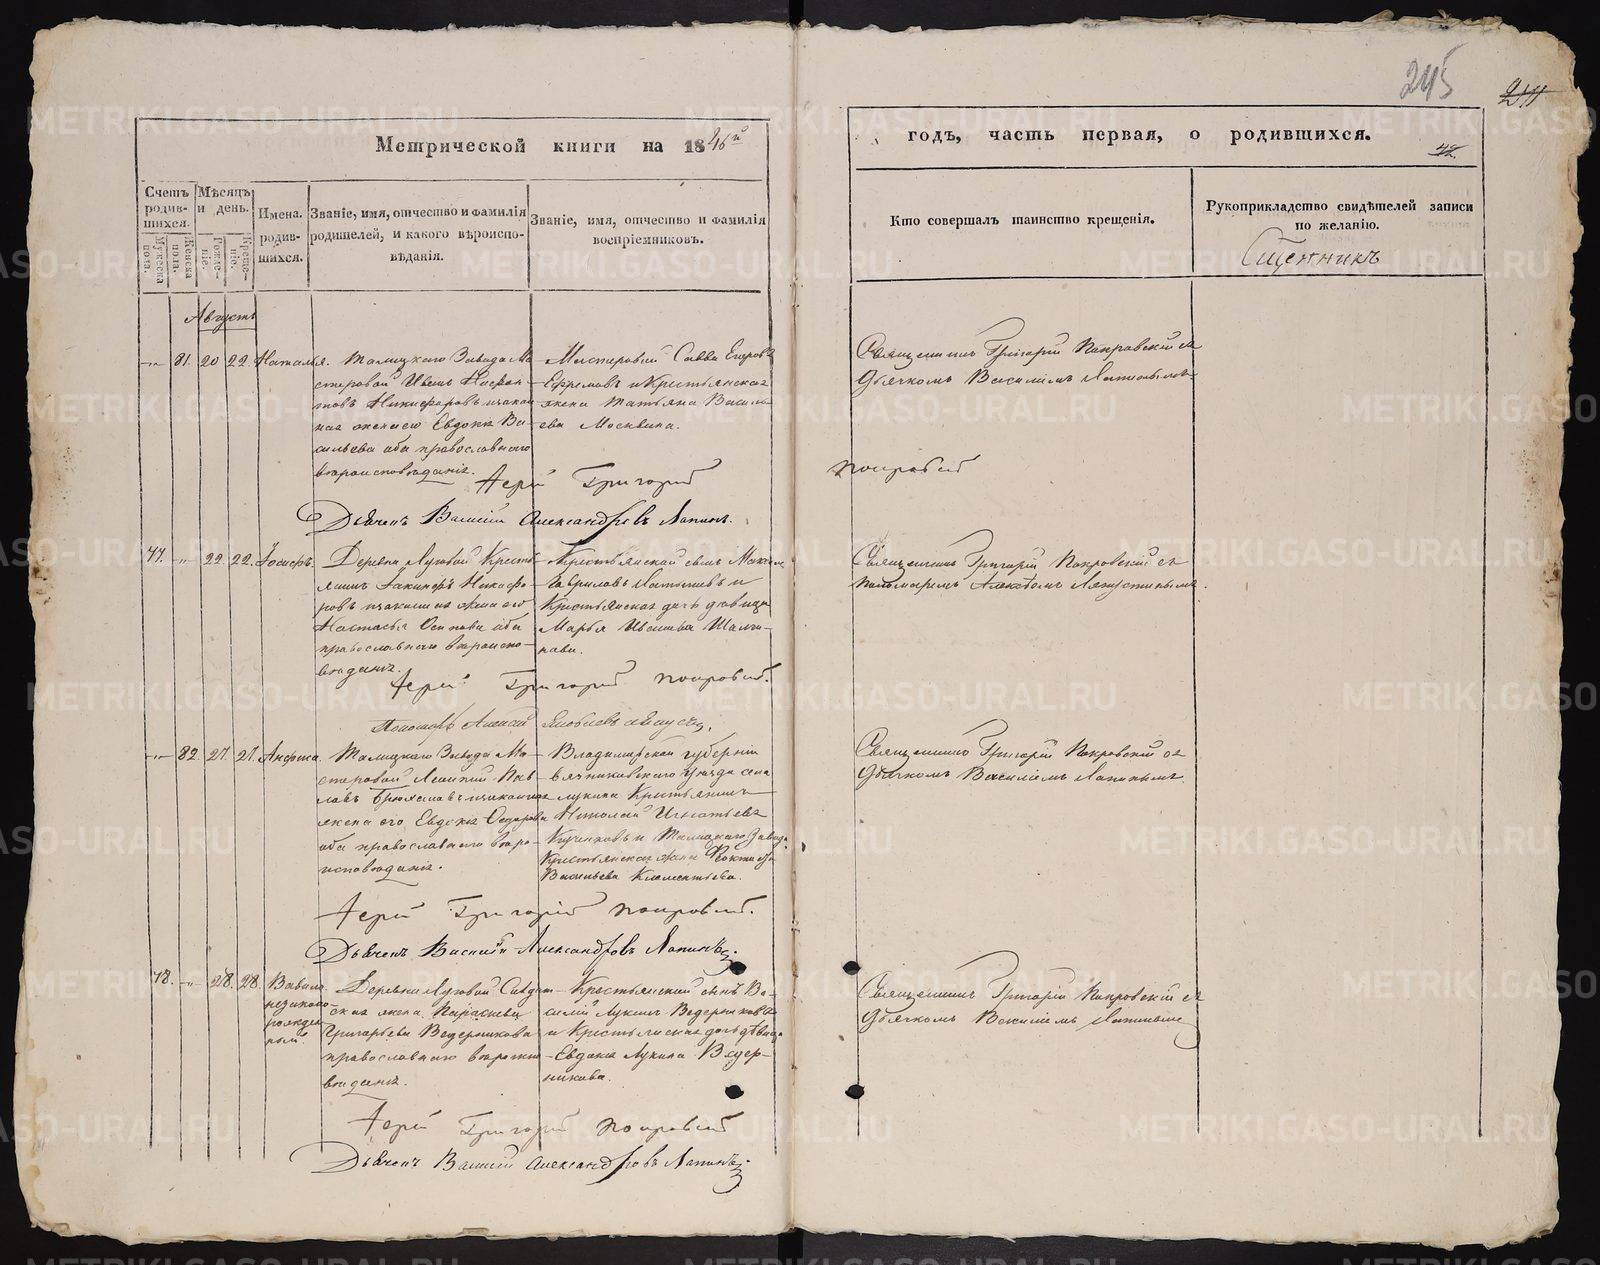 245
211
Метрической книги на 1846й
годъ, часть первая, о родившихся.
42.
Счетъ родив-шихся.
Мужеска пола.
Женска пола.
Мѣсяцъ и день.
Рожде-нія.
Креще-нія.
Имена. родив-шихся.
Званіе, имя, отчество и фамилія
родителей, и какого вѣроиспо-
вѣданія.
Званіе, имя, отчество и фамилія
воспріемниковъ.
Кто совершалъ таинство крещенія.
Рукоприкладство свидѣтелей записи
по желанію.
Августъ
81. 20 22. Наталья.
Талицкаго Завода Ма-
стеровой Иванъ
Никифоровъ и закон-
ная жена его Евдокія Ва-
сильева оба православнаго
вѣроисповѣданія.
Мастеровой Савва Егоровъ
Ефремовъ и Крестьянская
жена Татьяна Василь-
ева Москвина.
Священникъ Григорій Покровскій съ
Дьячкомъ Василіемъ Лапинымъ
Іерей Григорій Покровскій
Дьячекъ Василій Александровъ Лапинъ.
77. 22. 22. Іосифъ.
Деревни Луговой Кресть-
янинъ Іакинфъ Никифо-
ровъ и законная жена его
Настасья Осипова оба
православнаго вѣроиспо-
вѣданія.
Крестьянской сынъ
Гавриловъ и
Крестьянская дочь дѣвица
Марья Иванова
Священникъ Григорій Покровскій съ
пономаремъ
Іерей Григорій Покровскій.
Пономарь Алексѣй Яковлевъ
82. 27. 27. Анфиса.
Талицкаго Завода Ма-
стеровой
и законная
жена его Евдокія Федорова
оба православнаго вѣро-
исповѣданія.
Владимірской губерніи
Вязниковскаго уѣзда села
Крестьянинъ
Николай Игнатьевъ
и Талицкаго Завода
Крестьянская жена
Васильева Клементьева.
Священникъ Григорій Покровскій съ
Дьячкомъ Василіемъ Лапинымъ
Іерей Григорій Покровскій.
Дьячекъ Василій Александровъ Лапинъ.
78. 28. 28. Вавила
незаконно-
рожден-
ный.
Деревни Луговой Солдат-
ская жена Параскева
Григорьева Ведерникова
православнаго вѣроиспо-
вѣданія.
Крестьянской сынъ Ва-
силій Лукинъ Ведерниковъ
и Крестьянская дочь дѣвица
Евдокія Лукина Ведер-
никова.
Священникъ Григорій Покровскій съ
Дьячкомъ Василіемъ Лапинымъ
Іерей Григорій Покровскій
Дьячекъ Василій Александровъ Лапинъ.
METRIKI.GASO-URAL.RU